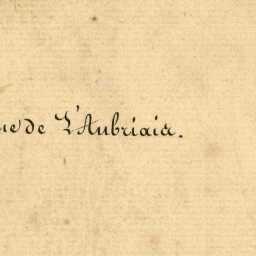 ue de L'Aubriais.